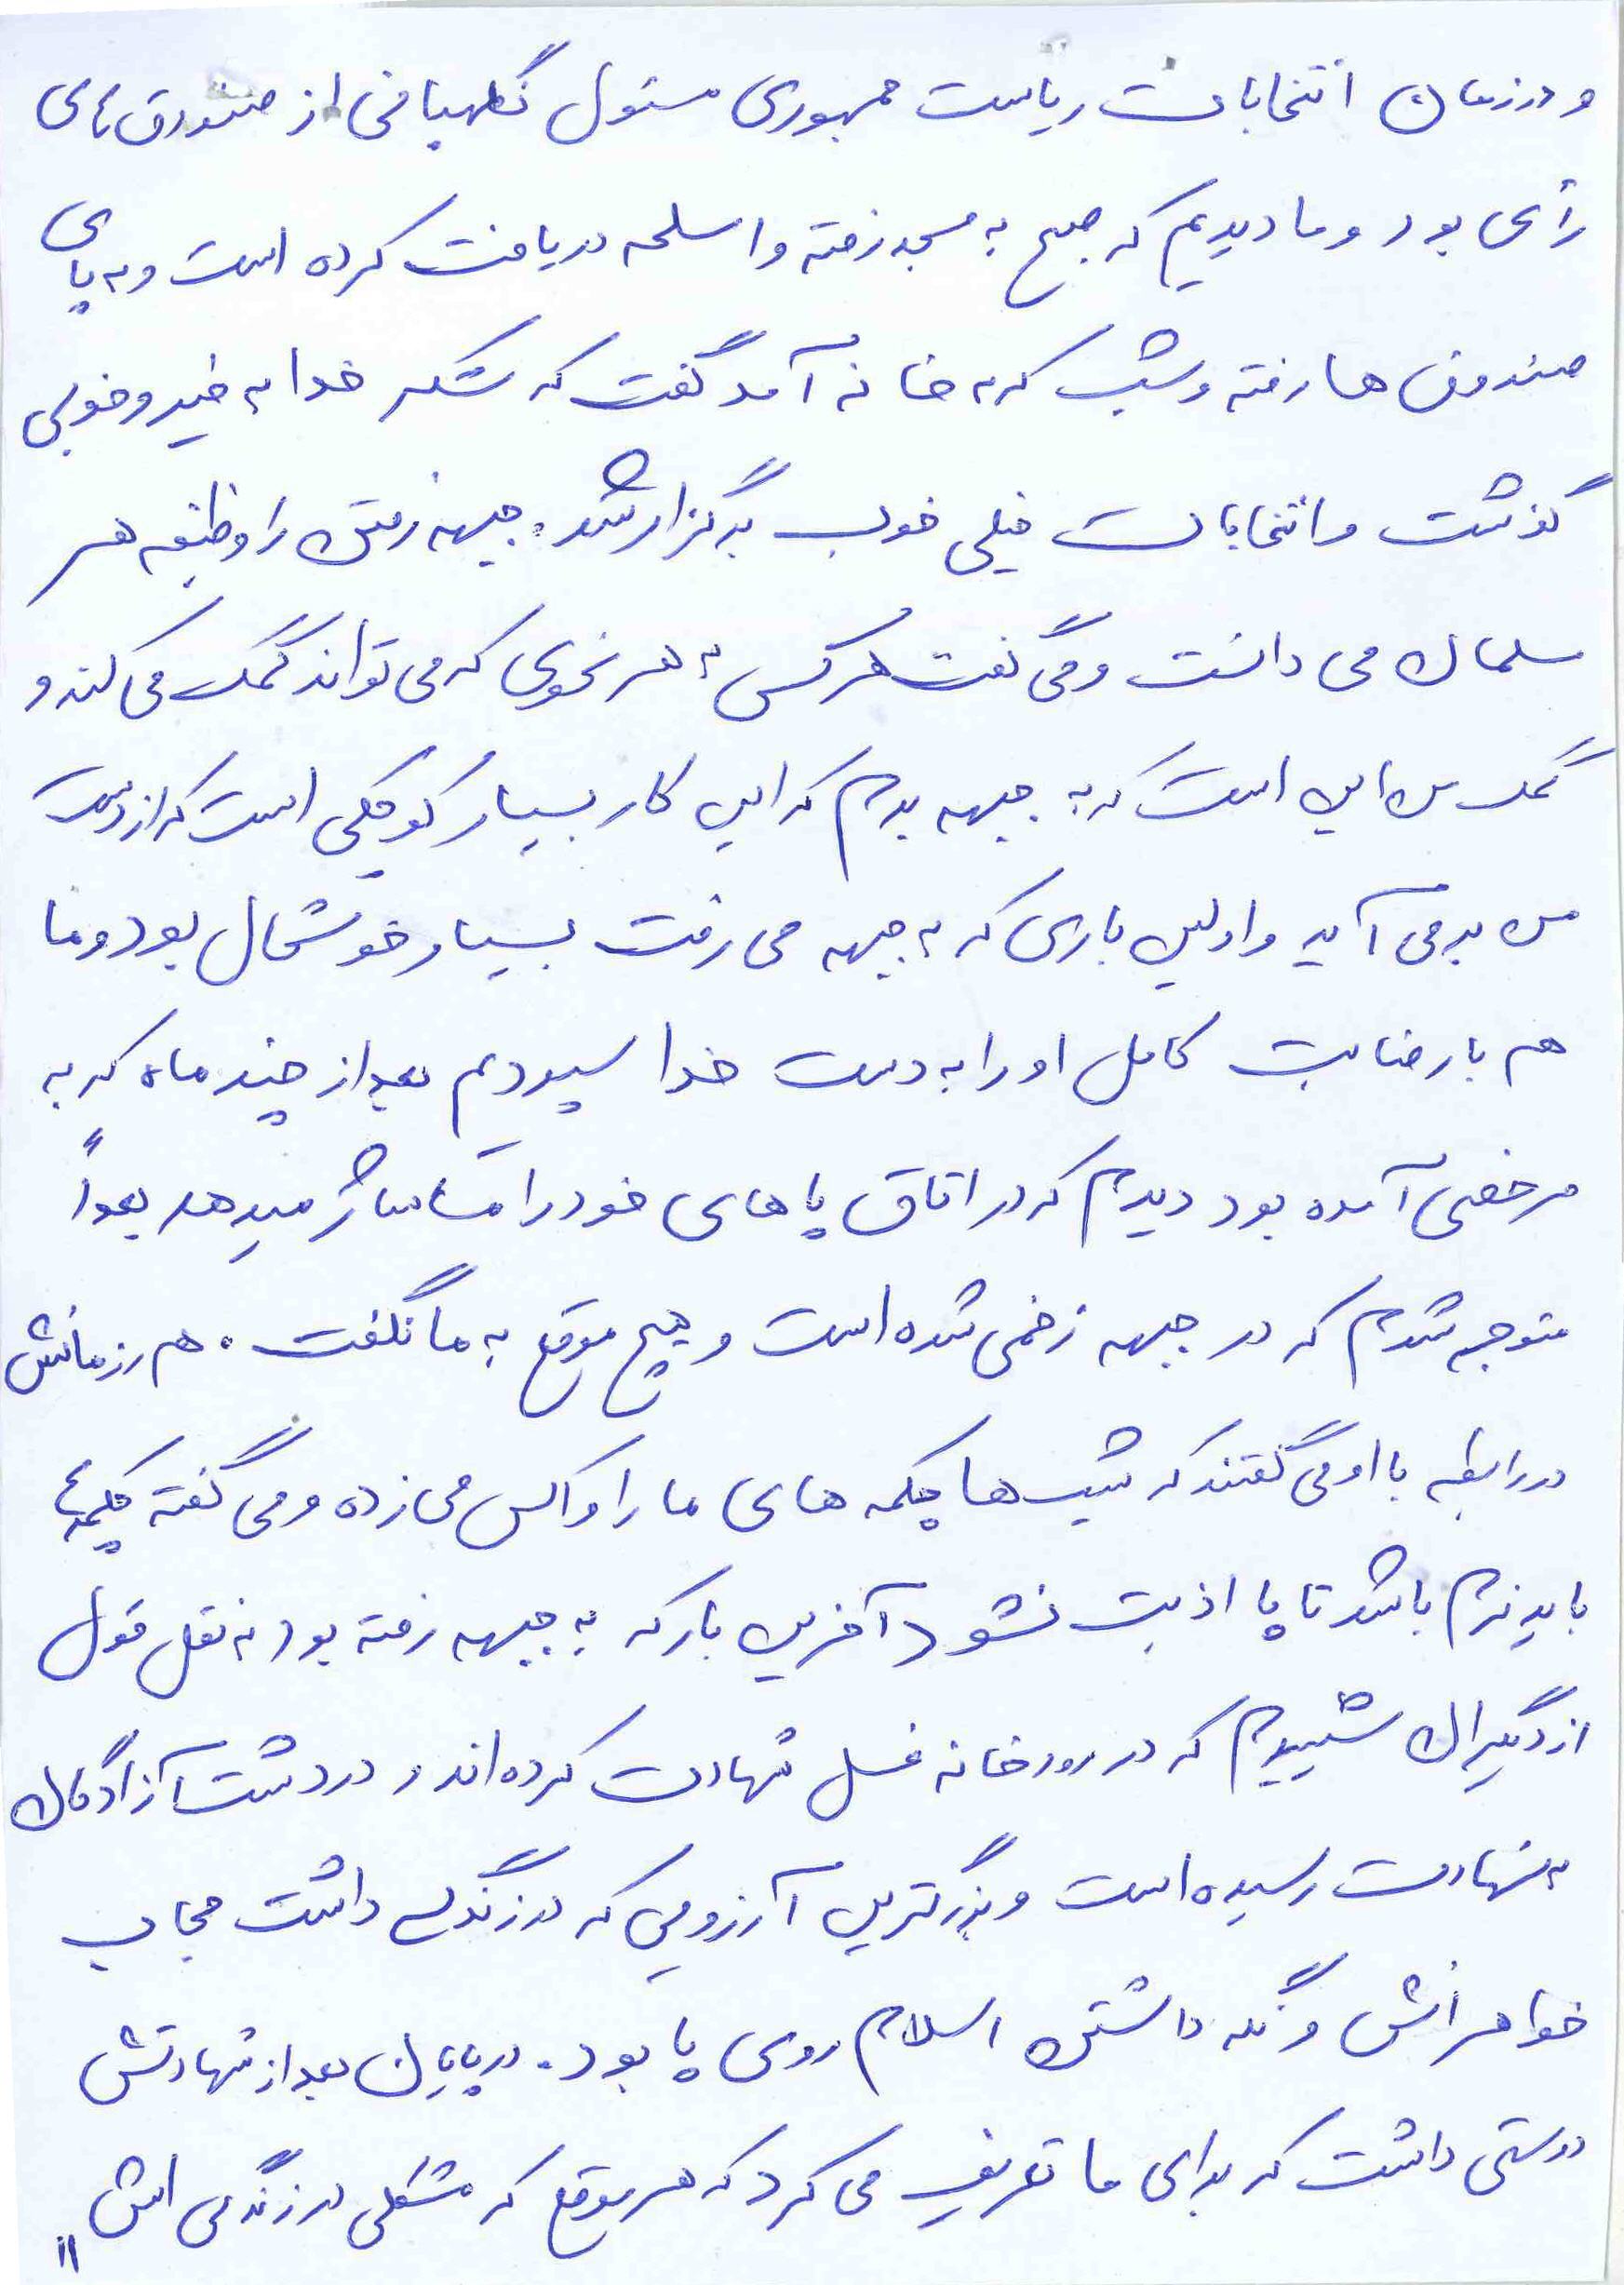 و در زمان انتخابات ریاست جمهوری مسئول نگهبانی از صندوق های
رأی بود و ما دیدیم که صبح به مسجد رفته و اسلحه دریافت کرده است و به پای
صندوق ها رفته و شب که به خانه آمد گفت که شکر خدا به خیر و خوبی
گذشت و انتخابات خیلی خوب برگزار شد. جبهه رفتن را وظیفه هر
مسلمان می دانست و می گفت هر کس به هر نحوی که می تواند کمک می کند و
کمک من این است که به جبهه بروم که این کار بسیار کوچکی است که از دست
من بر می آید و اولین باری که به جبهه می رفت بسیار خوشحال بود و ما
هم با رضایت کامل او را به دست خدا سپردیم بعد از چند ماه که به
مرخصی آمده بود دیدم که در اتاق پاهای خود را ماساژ میدهد بعداً
متوجه شدم که در جبهه زخمی شده است و هیچ موقع به ما نگفت. هم رزمانش
در رابطه با او می گفتند که شب ها چکمه های ما را واکس می زده و می گفته چکمه ها
باید نرم باشد تا پا اذیت نشود آخرین بار که به جبهه رفته بود به نقل قول
از دیگران شنیدیم که در رودخانه غسل شهادت کرده اند و در دشت آزادگان
به شهادت رسیده است و بزرگترین آرزویی که در زندگی داشت حجاب
خواهرانش و نگه داشتن اسلام روی پا بود. در پایان بعد از شهادتش
دوستی داشت که برای ما تعریف می کرد که هر موقع که مشکلی در زندگی اش